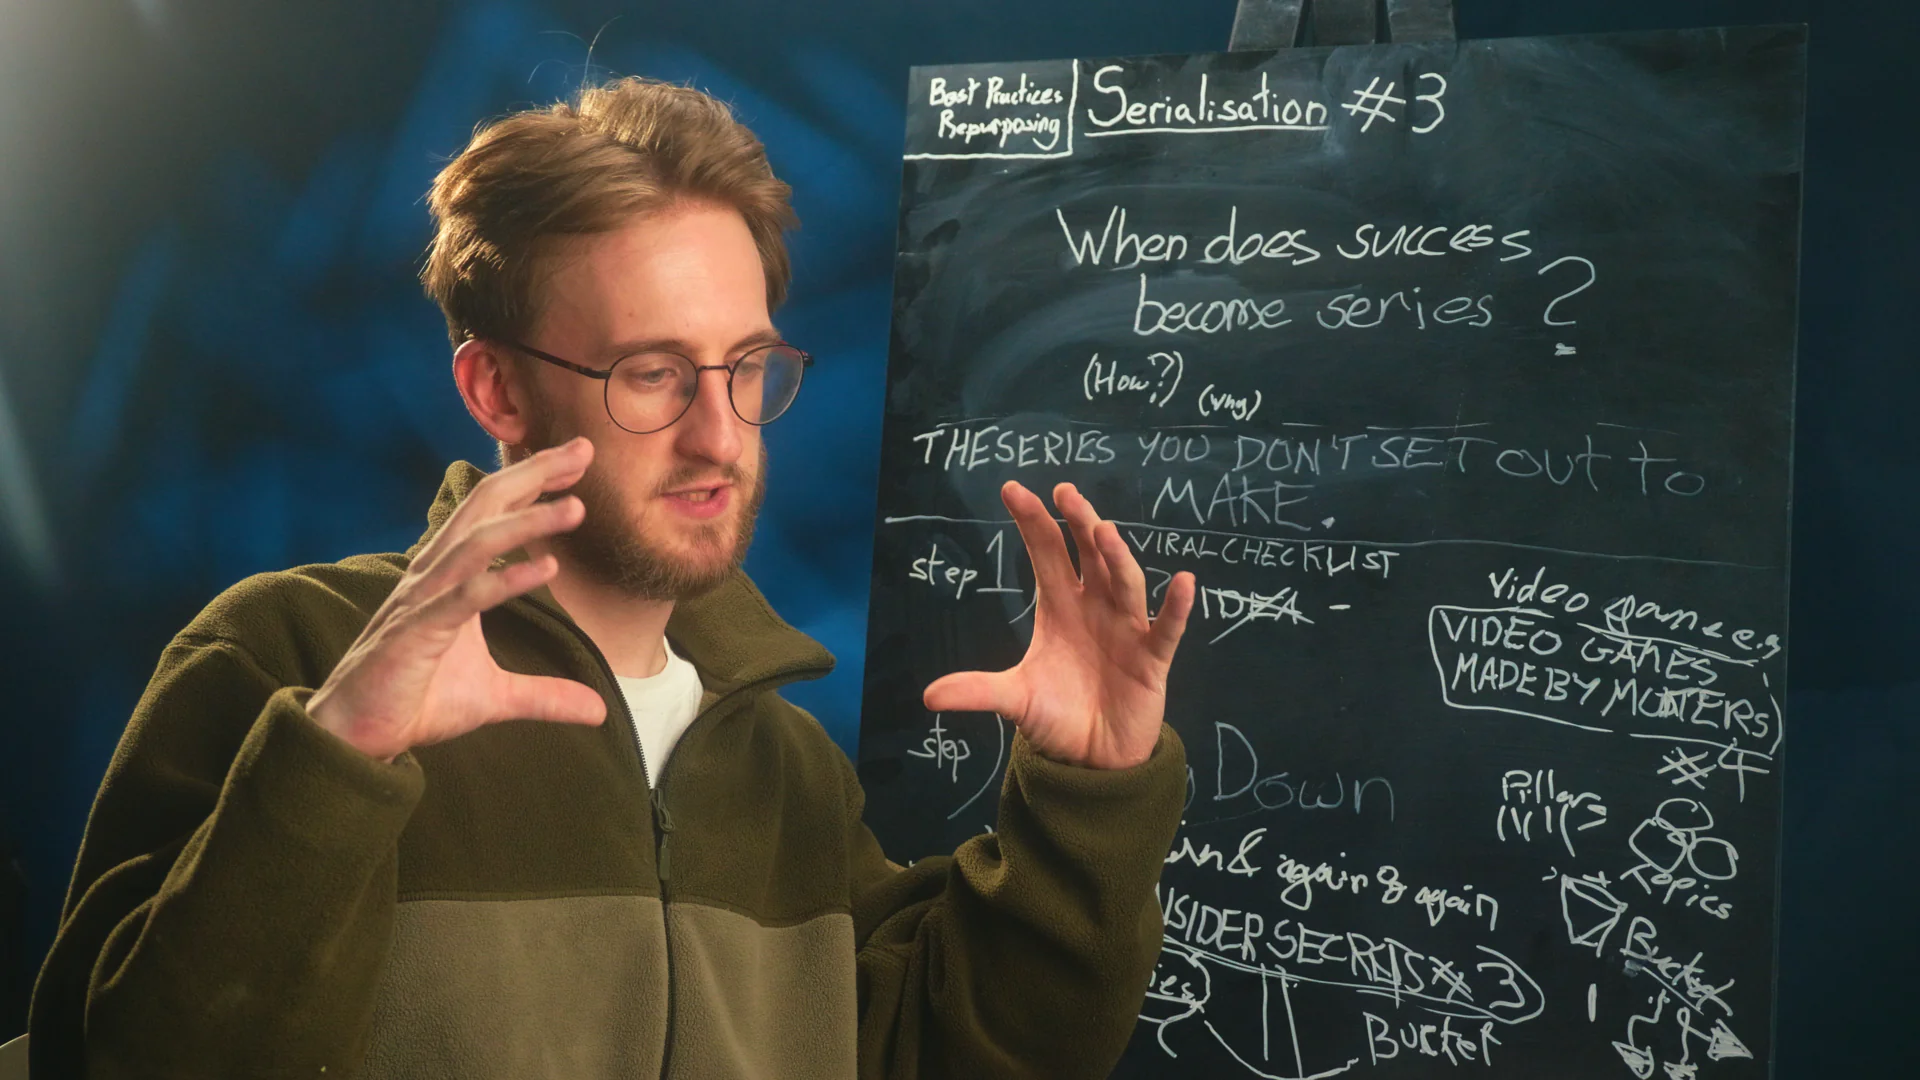 Best Practices
Repurposing
Serialisation #3
When does success
become series ?
(How?) (Why)
THE SERIES YOU DON'T SET OUT TO
MAKE.
step 1
VIRAL CHECKLIST
? IDEA -
Video games e.g
VIDEO GAMES
MADE BY
#4
step
Down
& again & again
Pillars
Topics
Bucket
SIDER SECRETS #3
ies
Bucket